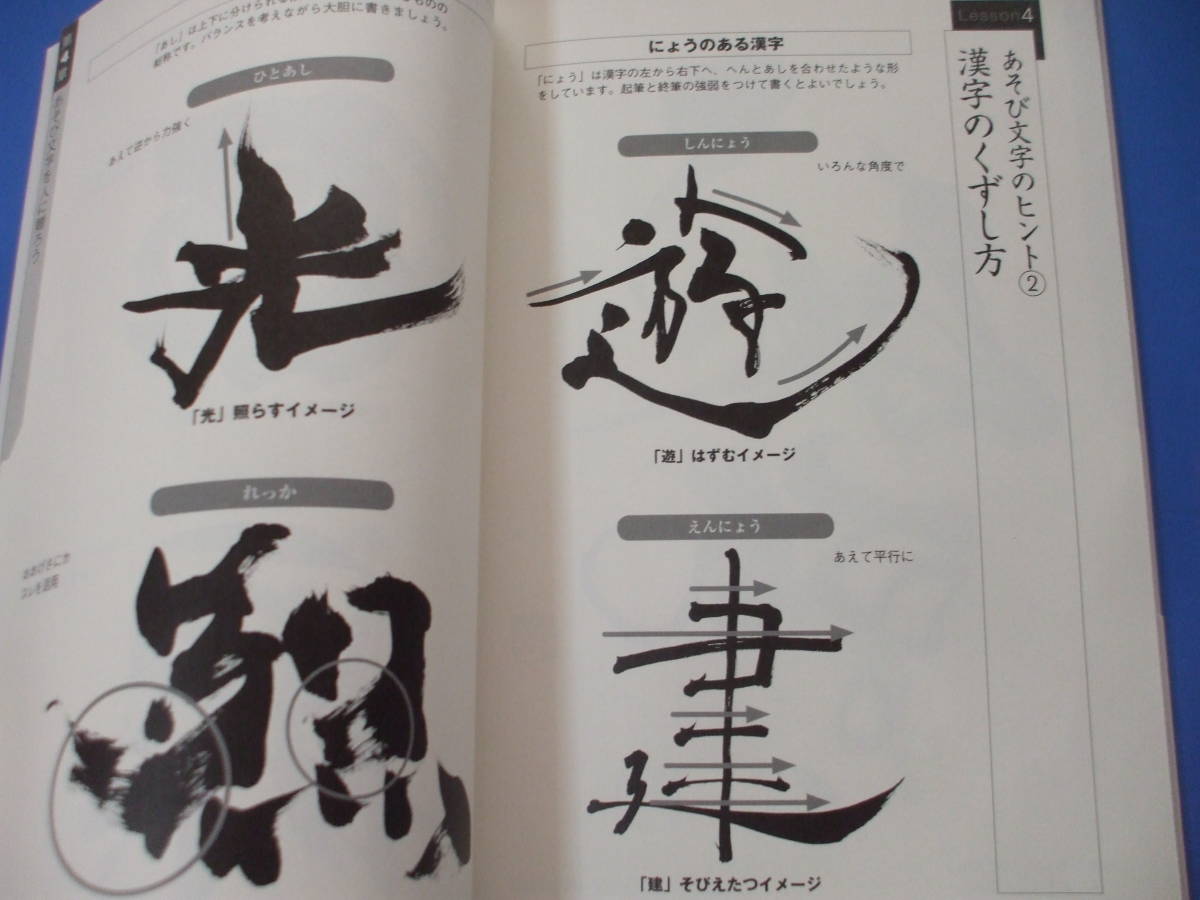 Lesson4
あそび文字のヒント②
漢字のくずし方
にょうのある漢字
「にょう」は漢字の左から右下へ、へんとあしを合わせたような形
をしています。起筆と終筆の強弱をつけて書くとよいでしょう。
しんにょう
いろんな角度で
遊
「遊」はずむイメージ
えんにょう
あえて平行に
建
「建」そびえたつイメージ
「あし」は上下に分けられる
ものの
総称です。バランスを考えながら大胆に書きましょう。
ひとあし
あえて逆から力強く
光
「光」照らすイメージ
れっか
おおげさにカ
スレを活用
第4章